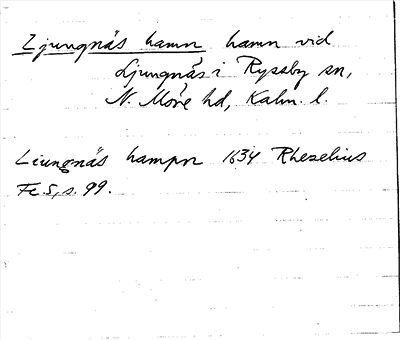 Ljungnäs hamn hamn vid
Ljungnäs i Ryssby sn,
N. Möre hd, Kalm. l.
Liungnäs hampn 1634 Rhezelius
Fc.5, s. 99.